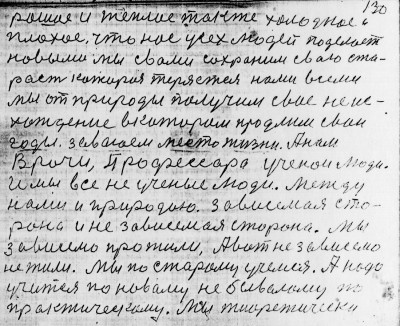 130
рошое и теплое также холодное и
плохое, что нас усех людей поделает
новыми мы свами сохраним сваю ста-
раст которая теряется нами всеми
мы от природы получим свае неис-
хождение в котором продлим сваи
годы. заваюем место жизни. А нам
Врачи, Профессара ученои люди.
И мы все не ученые люди. Между
нами и природаю. зависемая сто-
рона и не зависемая сторона. Мы
зависимо прожили, А вот не зависимо
не жили. Мы по старому учемся. А надо
учится по новаму не бывалому по
практическому. Мы тиоретически